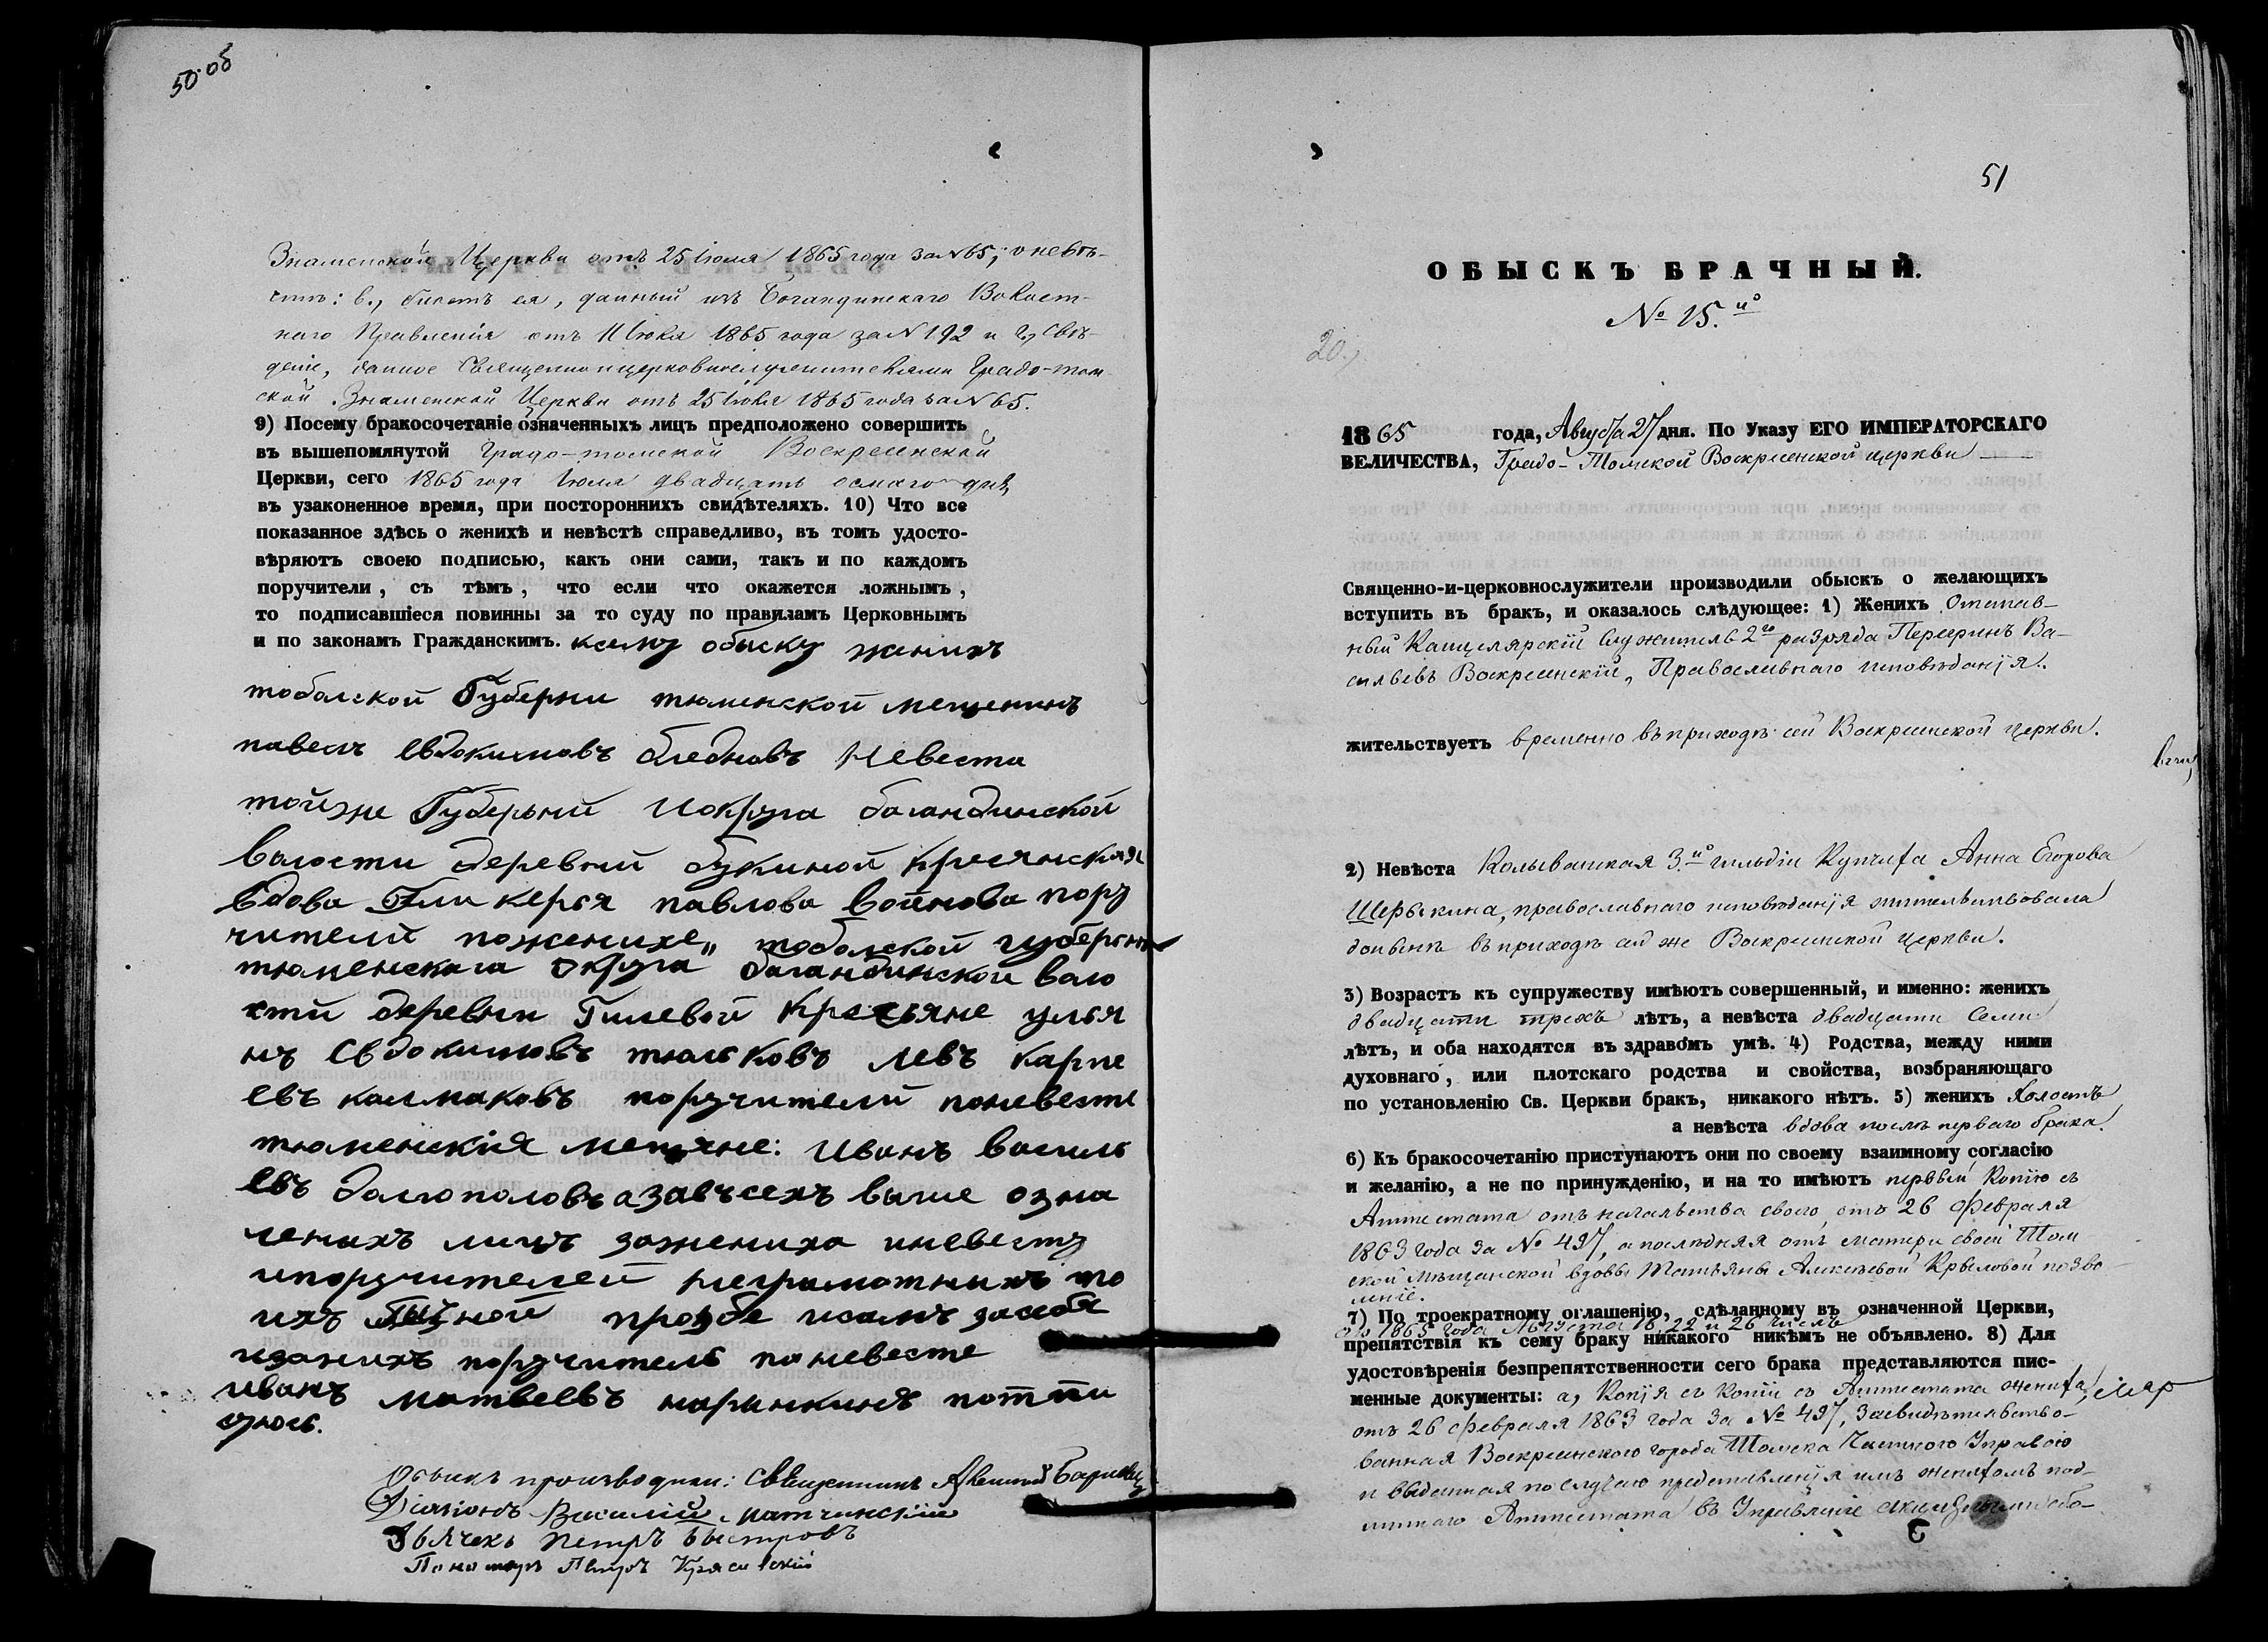 50 об
Знаменской Церкви отъ 25 Іюля 1865 года за № 65; о невѣ-
стѣ: в., билетъ ея, данный изъ Богандинскаго Волост-
наго Правленія отъ 11 Іюля 1865 года за № 192 и г., свѣ-
деніе, данное Священно и церковнослужителями Градо-том-
ской Знаменской Церкви отъ 25 Іюля 1865 года за № 65.
9) Посему бракосочетаніе означенныхъ лицъ предположено совершить
въ вышепомянутой Градо-томской Воскресенской
Церкви, сего 1865 года Іюля двадцать осмаго дня,
въ узаконенное время, при постороннихъ свидѣтеляхъ. 10) Что все
показанное здѣсь о женихѣ и невѣстѣ справедливо, въ томъ удосто-
вѣряютъ своею подписью, какъ они сами, такъ и по каждомъ
поручители, съ тѣмъ, что если что окажется ложнымъ,
то подписавшіеся повинны за то суду по правиламъ Церковнымъ
и по законамъ Гражданскимъ. ксему обыску женихъ
тобалской Губерни тюменской мещенинъ
павелъ евдокимовъ бледновъ Невеста
тойже Губерьний Иокруга багандинской
валости деревний букиной кресянская
вдова Гликерья павлова войнова пору
чители пожениxе„ тобалской губерьни
тюменскага округа баганбинской вало
сти деревни Гилевой Кресьяне улья
нъ Евдокимовъ тюльковъ левъ карпе
евъ калмаковъ поручители поневесте
тюменския мещяне: Иванъ василь
евъ далгополовъ азавъсехъ выше озна
ченыхъ лицъ зажениха иневесту
ипоручителей неграмотныхъ по
ихъ личной прозбе исамъ засебя
изанихъ поручитель паневесте
иванъ матвеевъ нарынкинъ потпи
суюсь.
Обыскъ производили: Священникъ
Діаконъ Василий Матчинскій
Дьячекъ Петръ Быстровъ
Пономарь Петръ
51
ОБЫСКЪ БРАЧНЫЙ.
№ 15.й
20.
1865 года, Августа 27 дня. По Указу ЕГО ИМПЕРАТОРСКАГО
ВЕЛИЧЕСТВА, Градо-Томской Воскресенской церкви
Священно-и-церковнослужители производили обыскъ о желающихъ
вступить въ бракъ, и оказалось слѣдующее: 1) Женихъ Отстав-
ный Канцелярскій служитель 2го разряда Перегринъ Ва-
сильевъ Воскресенскій, Православнаго исповѣданія.
жительствуетъ временно въ приходѣ сей Воскресенской церкви.
2) Невѣста Колыванская 3.й гильдіи Купчиха Анна Егорова
Щербакина, православнаго исповѣданія жительствовала
донынѣ въ приходѣ сей же Воскресенской церкви.
3) Возрастъ къ супружеству имѣютъ совершенный, и именно: женихъ
двадцати трехъ лѣтъ, а невѣста двадцати семи
лѣтъ, и оба находятся въ здравомъ умѣ. 4) Родства, между ними
духовнаго, или плотскаго родства и свойства, возбраняющаго
по установленію Св. Церкви бракъ, никакого нѣтъ. 5) женихъ холостъ
а невѣста вдова послѣ перваго брака.
6) Къ бракосочетанію приступаютъ они по своему взаимному согласію
и желанію, а не по принужденію, и на то имѣютъ первый Копію съ
Аттестата отъ начальства своего, отъ 26 Февраля
1863 года за № 497, а послѣдняя отъ матери своей Том
ской Мѣщанской вдовы Татьяны Алексѣевой Крыловой позво-
леніе.
7) По троекратному оглашенію, сдѣланному въ означенной Церкви,
1865 года Августа 18, 22 и 26 чиселъ
препятствія къ сему браку никакого никѣмъ не объявлено. 8) Для
удостовѣренія безпрепятственности сего брака представляются пис-
менные документы: а, Копія съ Копіи съ Аттестата жениха,
отъ 26 Февраля 1863 года за № 497, засвидѣтельство-
ванная Воскресенскаго города Томска Частною Управою
и выданная по случаю представленія имъ женихомъ под-
линнаго Аттестата въ Управленіе